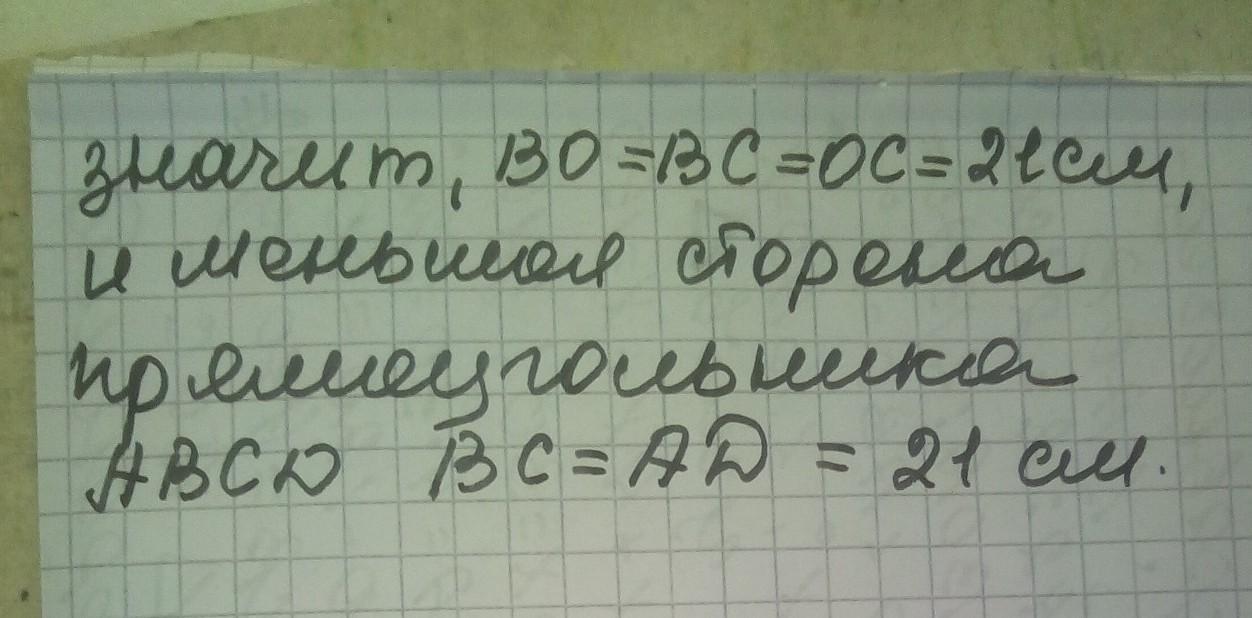 значит, BO=BC=OC=21см,
и меньшая сторона
прямоугольника
ABCD BC=AD = 21 см.